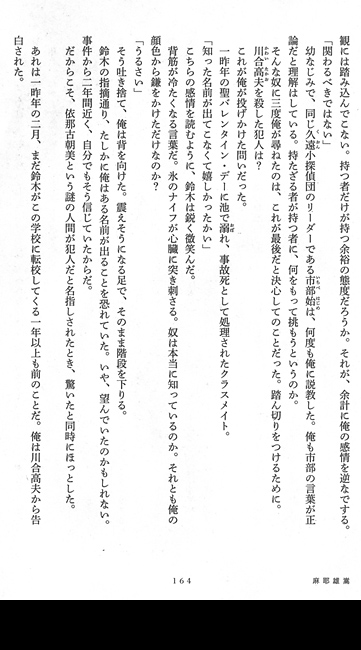 観には踏み込んでこない。持つ者だけが持つ余裕の態度だろうか。それが、余計に俺の感情を逆なでする。
「関わるべきではない」
幼なじみで、同じ久遠小探偵団のリーダーである市部始は、何度も俺に説教した。俺も市部の言葉が正
論だと理解はしている。持たざる者が持つ者に、何をもって挑もうというのか。
そんな奴に三度俺が尋ねたのは、これが最後だと決心してのことだった。踏ん切りをつけるために。
川合高夫を殺した犯人は？
これが俺が投げかけた問いだった。
一昨年の聖バレンタイン・デーに池で溺れ、事故死として処理されたクラスメイト。
「知った名前が出てこなくて嬉しかったかい」
こちらの感情を読むように、鈴木は鋭く微笑んだ。
背筋が冷たくなる言葉だ。氷のナイフが心臓に突き刺さる。奴は本当に知っているのか。それとも俺の
顔色から鎌をかけただけなのか？
「うるさい」
そう吐き捨て、俺は背を向けた。震えそうになる足で、そのまま階段を下りる。
鈴木の指摘通り、たしかに俺はある名前が出ることを恐れていた。いや、望んでいたのかもしれない。
事件から二年間近く、自分でもそう信じていたからだ。
だからこそ、依那古朝美という謎の人間が犯人だと名指しされたとき、驚いたと同時にほっとした。
あれは一昨年の二月、まだ鈴木がこの学校に転校してくる一年以上も前のことだ。俺は川合高夫から告
白された。
164
麻耶雄嵩